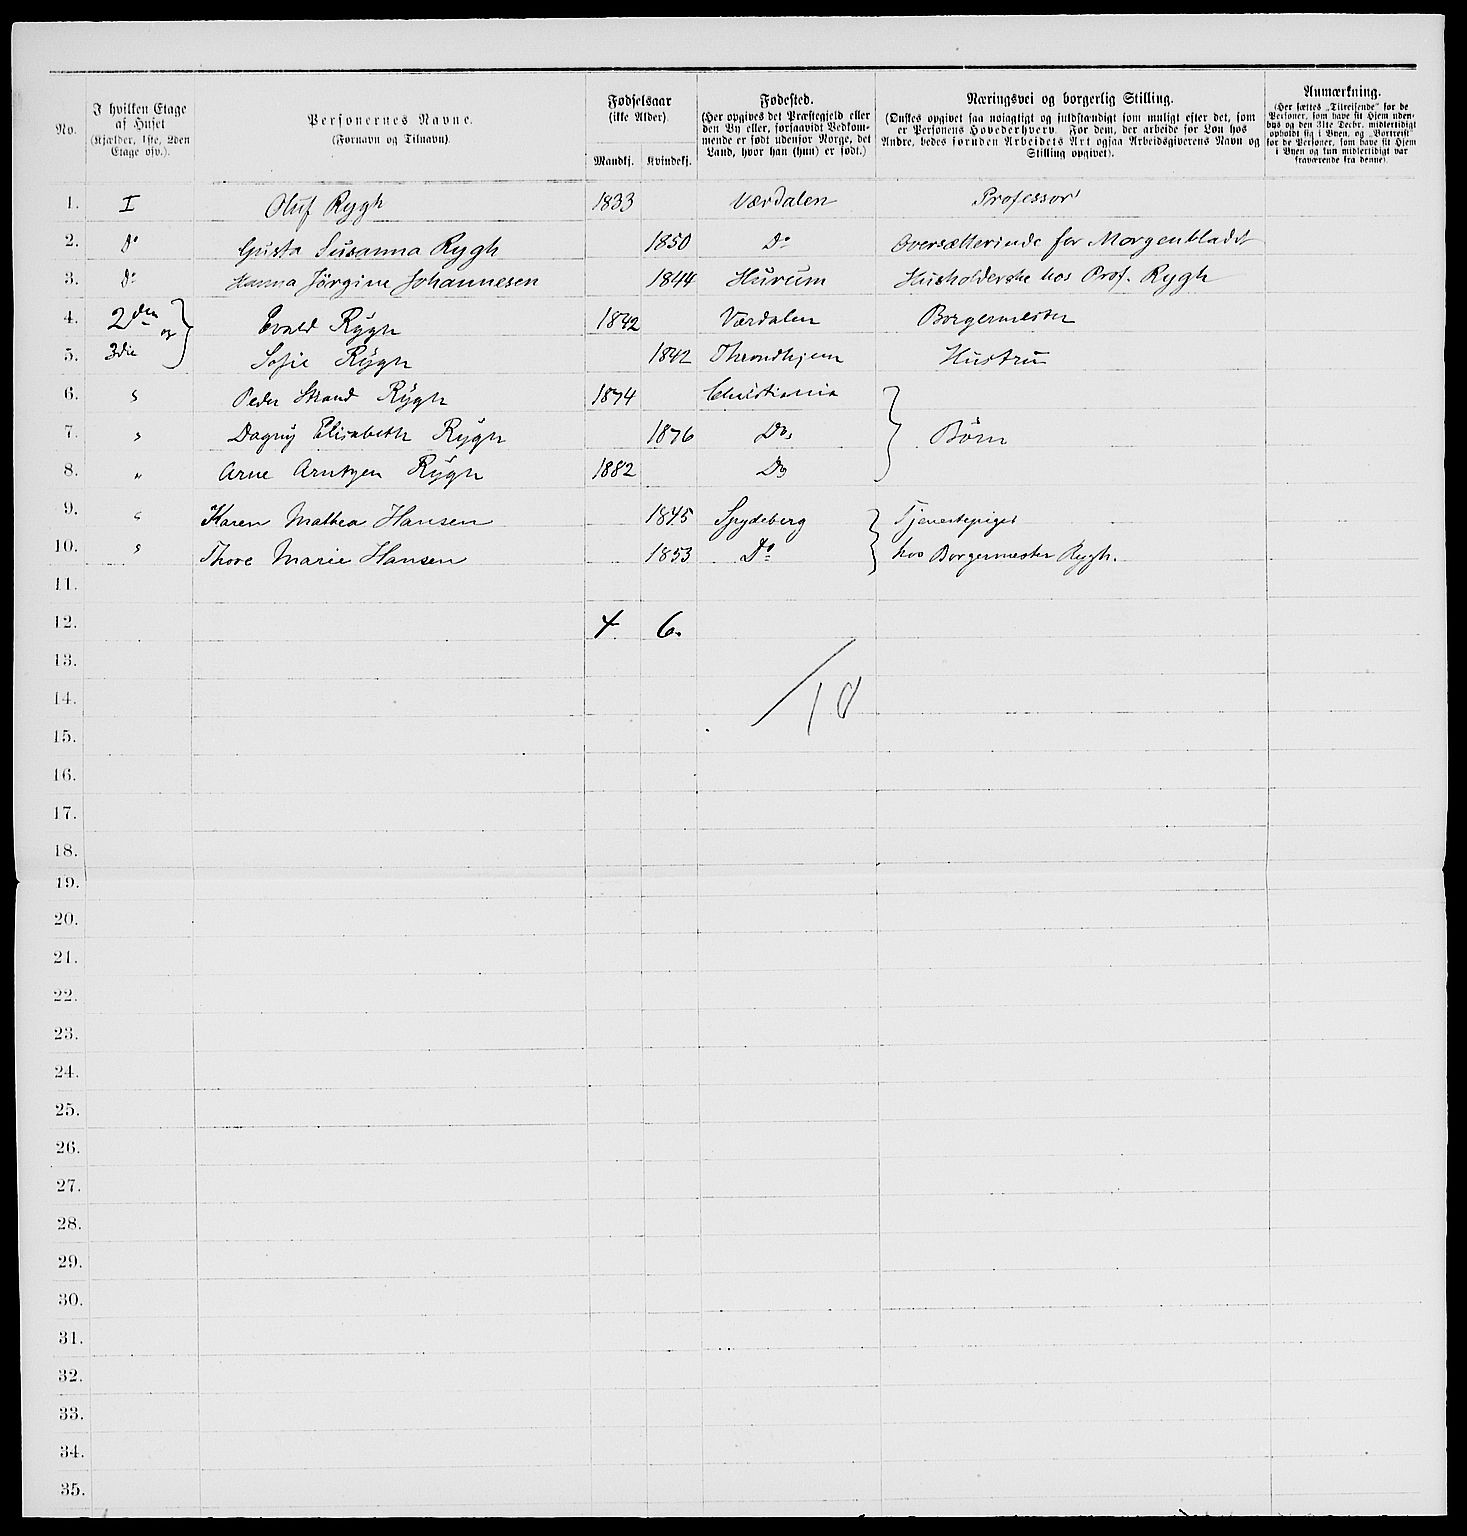 No. I hvilken Etage af Huset (Kjælder, 1ste, 2den Etage osv.). Personernes Navne. (Fornavn og Tilnavn). Fødselsaar (ikke Alder). Mandkj. Kvindekj. Fødested. (Her opgives det Præstegjeld eller den By eller, forsaavidt Vedkommende er født udenfor Norge, det Land, hvor han (hun) er født.) Næringsvei og borgerlig Stilling. (Ønskes opgivet saa nøiagtigt og fuldstændigt som muligt efter det, som er Personens Hovederhverv. For dem, der arbeide for Løn hos Andre, bedes foruden Arbeidets Art ogsaa Arbeidsgiverens Navn og Stilling opgivet). Anmærkning. (Her sættes „Tilreisende" for de Personer, som have sit Hjem udenbys og den 31te Decbr. midlertidigt opholdt sig i Byen, og „Bortreist" for de Personer, som have sit Hjem i Byen og kun midlertidigt var fraværende fra denne).
1. I Oluf Rygh 1833 Værdalen Professor
2. do Gusta Susanna Rygh 1850 Do Oversætterinde for Morgenbladet
3. do Hanna Jörgine Johannesen 1844 Hurum Husholderske hos Prof. Rygh
4. 2den og Evald Rygh 1842 Værdalen Borgermester
5. 3die Sofie Rygh 1842 Throndhjem Hustru
6. " Peder Strand Rygh 1874 Christiania
7. " Dagny Elisabeth Rygh 1876 Do, Børn
8. " Arne Arntzen Rygh 1882 Do
9. " Karen Mathea Hansen 1845 Spydeberg Tjenestepiger
10. " Thore Marie Hansen 1853 Do hos Borgermester Rygh.
11.
12. 4 6.
13.
14. /10
15.
16.
17.
18.
19.
20.
21.
22.
23.
24.
25.
26.
27.
28.
29.
30.
31.
32.
33.
34.
35.